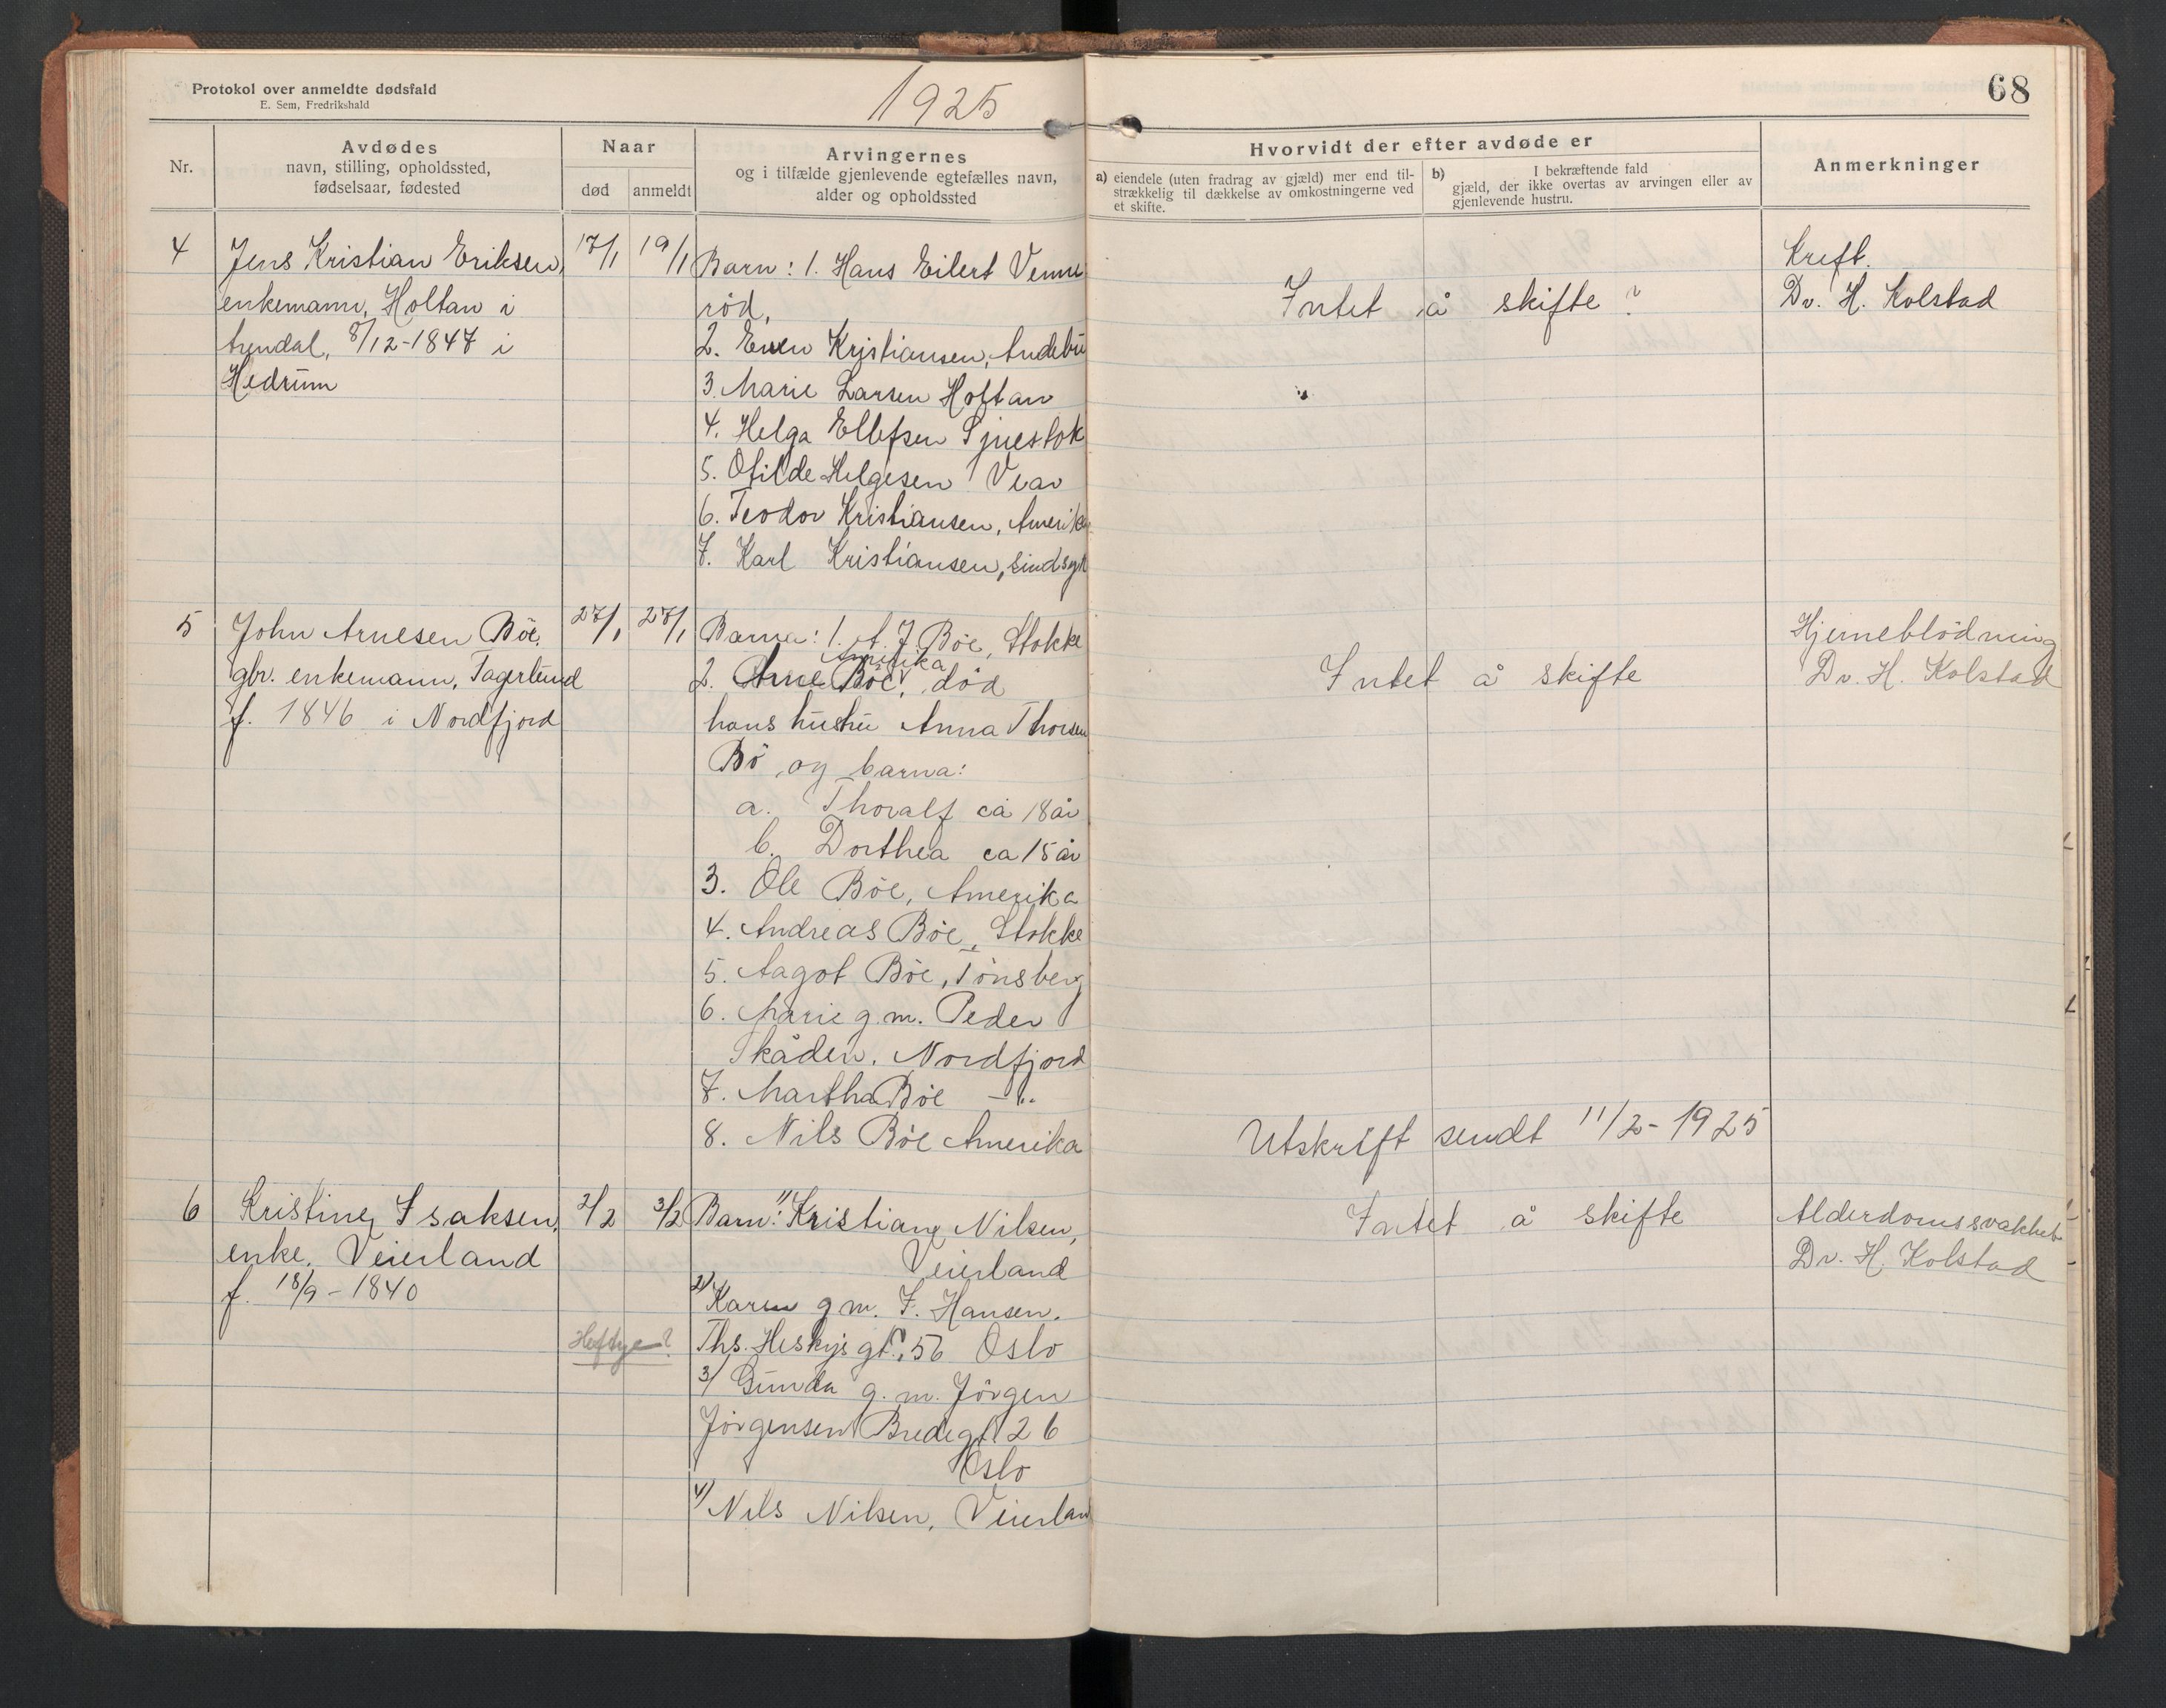 Protokol over anmeldte dødsfald
E. Sem, Fredrikshald
1925
68
Nr.
Avdødes
navn, stilling, opholdssted,
fødselsaar, fødested
Naar
død
anmeldt
Arvingernes
og i tilfælde gjenlevende egtefælles navn,
alder og opholdssted
Hvorvidt der efter avdøde er
a) eiendele (uten fradrag av gjæld) mer end til-
strækkelig til dækkelse av omkostningerne ved
et skifte.
b) I bekræftende fald
gjæld, der ikke overtas av arvingen eller av
gjenlevende hustru.
Anmerkninger
4
Jens Kristian Eriksen,
enkemann, Holtan i
Arendal, 8/12-1847 i
Hedrum
17/1
19/1
Barn: 1. Hans Eilert Venne
röd,
2. Even Kristiansen, Andebu
3. Marie Larsen Holtan
4. Helga Ellefsen Sjuestok
5. Otilde Helgesen Vear
6. Teodor Kristiansen, Amerika
7. Karl Kristiansen, sindsyk
Intet å skifte ?
Kreft.
Dr. H. Kolstad
5
John Arnesen Böe,
gbr. enkemann, Fagerlund
f. 1846 i Nordfjord
27/1
27/1
Barna: 1. A. J. Böe, Stokke
Amerika
2. Arne Böe, död
hans hustru Anna Thorsen
Bö og barna:
a. Thoralf ca 18 år
b. Dorthea ca 15 år
3. Ole Böe, Amerika
4. Andreas Böe, Stokke
5. Aagot Böe, Tönsberg
6. Marie g.m. Peder
Skåden, Nordfjord
7. Martha Böe -"-
8. Nils Böe Amerika
Intet å skifte
Utskrift sendt 11/2-1925
Hjerneblödning
Dr. H. Kolstad
6
Kristine Isaksen,
enke, Veierland
f. 18/9-1840
2/2
3/2
Barn: 1/ Kristiane Nilsen,
Veierland
2/ Karen g.m. F. Hansen,
Heftye?
Ths. Heskys gt. 56 Oslo
3/ Gunda g.m. Jörgen
Jörgensen Bredegt 26
Oslo
4/ Nils Nilsen, Veierland
Intet å skifte
Alderdomssvakhet
Dr. H. Kolstad